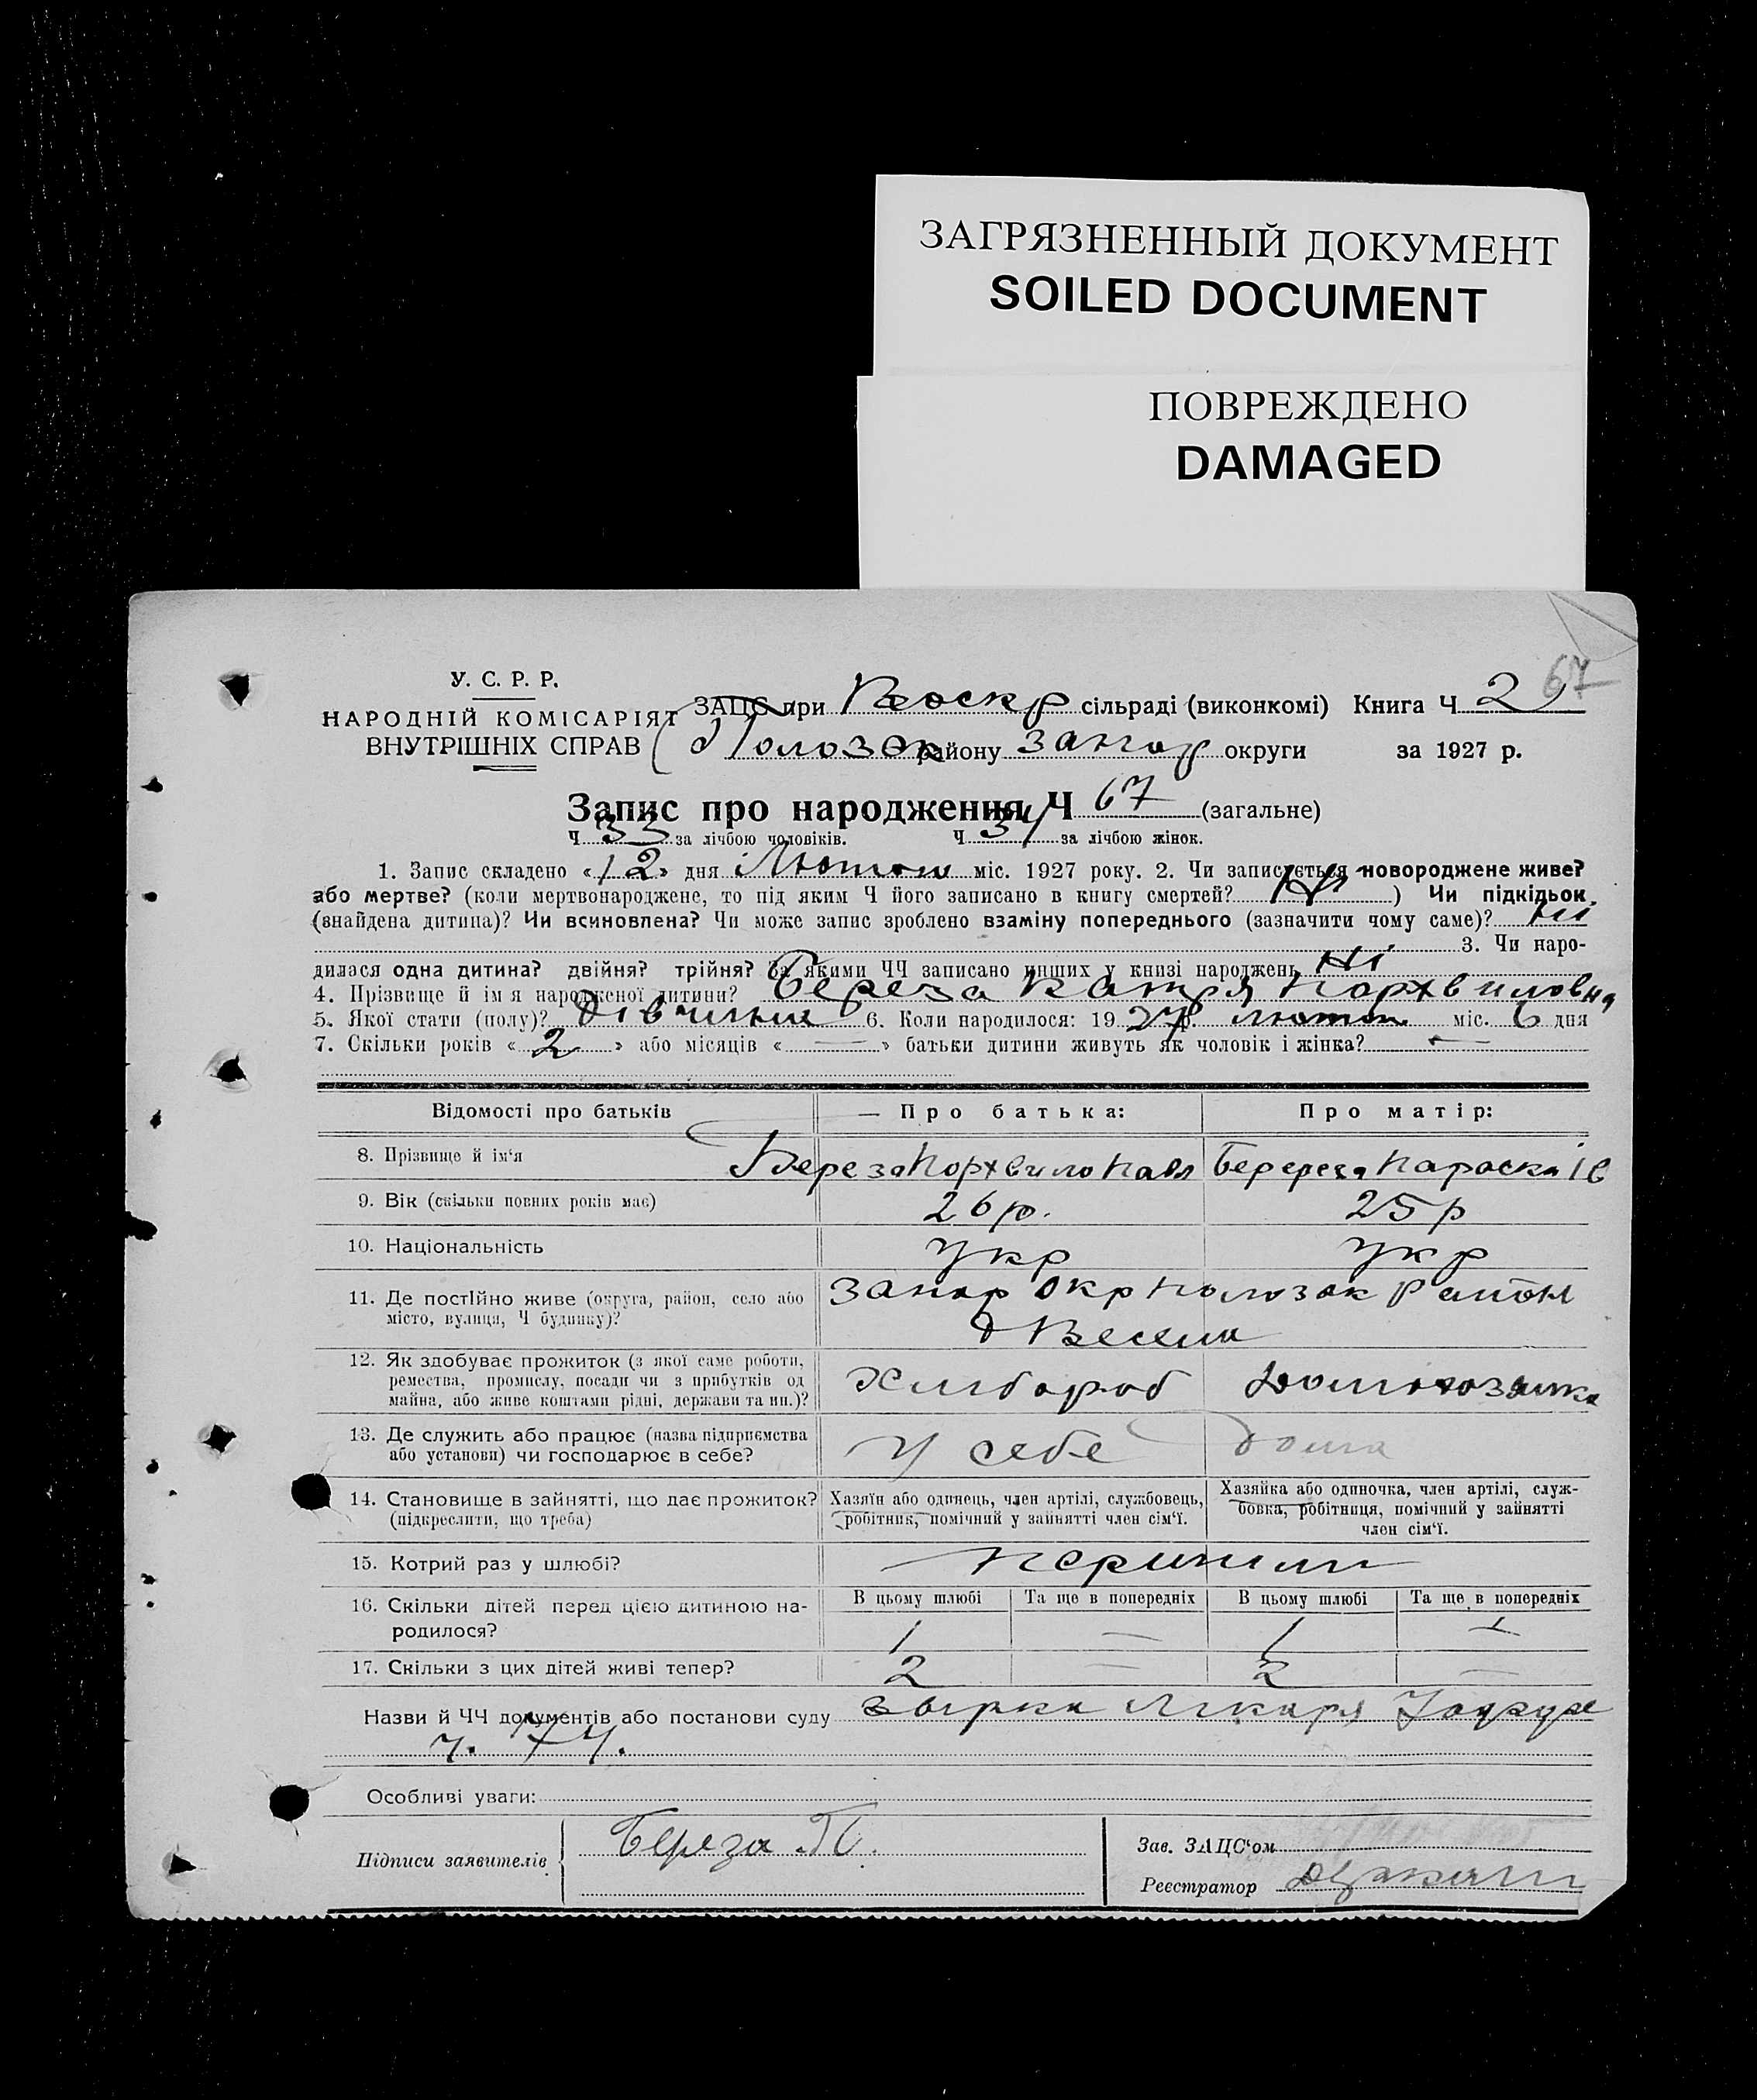 ЗАГРЯЗНЕННЫЙ ДОКУМЕНТ
SOILED DOCUMENT
ПОВРЕЖДЕНО
DAMAGED
67
У. С. Р. Р.
НАРОДНІЙ КОМІСАРІЯТ
ВНУТРІШНІХ СПРАВ
ЗАЦС при Воскр сільраді (виконкомі) Книга Ч 2
Полозок району Запор округи за 1927 р.
Запис про народження Ч 67 (загальне)
Ч 33 за лічбою чоловіків. Ч 34 за лічбою жінок.
1. Запис складено «12» дня Лютого міс. 1927 року. 2. Чи записується новороджене живе?
або мертве? (коли мертвонароджене, то під яким Ч його записано в книгу смертей? Ні ) Чи підкідьок
(знайдена дитина)? Чи всиновлена? Чи може запис зроблено взаміну попереднього (зазначити чому саме)? Ні
3. Чи наро-
дилася одна дитина? двійня? трійня? За якими ЧЧ записано инших у книзі народжень Ні
4. Прізвище й імя народженої дитини? Береза Катря Порхвиловна
5. Якої стати (полу)? дівчина 6. Коли народилося: 1927 р. лютого міс. 6 дня
7. Скільки років « 2 » або місяців « — » батьки дитини живуть як чоловік і жінка? —
Відомості про батьків — Про батька: Про матір:
8. Прізвище й ім'я Береза Порхвило Павл Беререза Параска Ів
9. Вік (скільки повних років має) 26 р. 25 р
10. Національність Укр Укр
11. Де постійно живе (округа, район, село або Запор Окр Полозок Район
місто, вулиця, Ч будинку)?
12. Як здобуває прожиток (з якої саме роботи,
ремества, промислу, посади чи з прибутків од Хлібороб
майна, або живе коштами рідні, держави та ин.)?
13. Де служить або працює (назва підприємства У себе дома
або установи) чи господарює в себе?
14. Становище в зайнятті, що дає прожиток? Хазяїн або одинець, член артілі, службовець, Хазяйка або одиночка, член артілі, служ-
(підкреслити, що треба) робітник, помічний у зайнятті член сім'ї. бовка, робітниця, помічний у зайнятті
член сім'ї.
15. Котрий раз у шлюбі? Перший
16. Скільки дітей перед цією дитиною на- В цьому шлюбі Та ще в попередніх В цьому шлюбі Та ще в попередніх
родилося? 1 — 1 —
17. Скільки з цих дітей живі тепер? 2 — 2 —
Назви й ЧЧ документів або постанови суду Лікаря
ч. 74.
Особливі уваги:
Підписи заявителів Береза П.
Зав. ЗАЦС'ом
Реєстратор